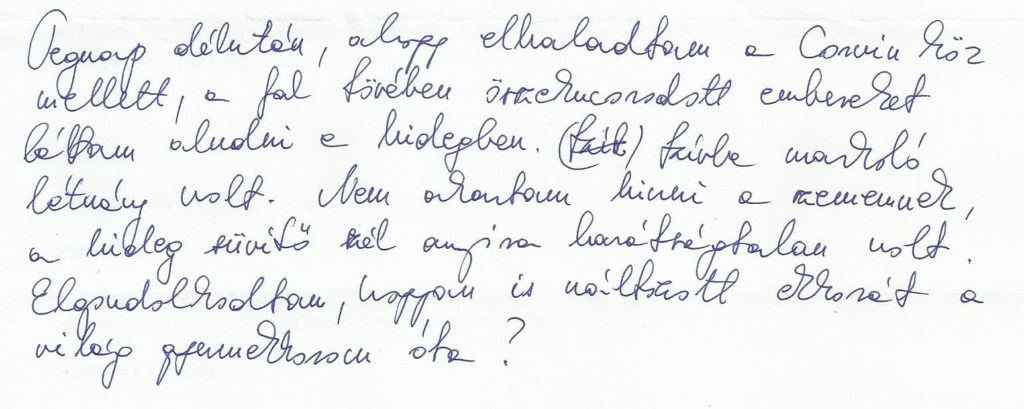 Tegnap délután, ahogy elhaladtam a Corvin köz
mellett, a fal tövében összekucorodott embereket
láttam aludni e hidegben. (szít) szívbe markoló
látvány volt. Nem akartam hinni a szememnek,
a hideg süvítő szél annyira barátságtalan volt.
Elgondolkodtam, hogyan is változott ekkorát a
világ gyermekkorom óta?